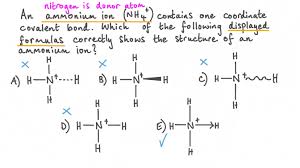 nitrogen is donor atom
An ammonium ion (NH₄⁺) contains one coordinate
covalent bond. Which of the following displayed
formulas correctly shows the structure of an
ammonium ion?
A) H N⁺ H H H
B) H N⁺ H H H
C) H N⁺ H H H
D) H N⁺ H H H
E) H N⁺ H H H